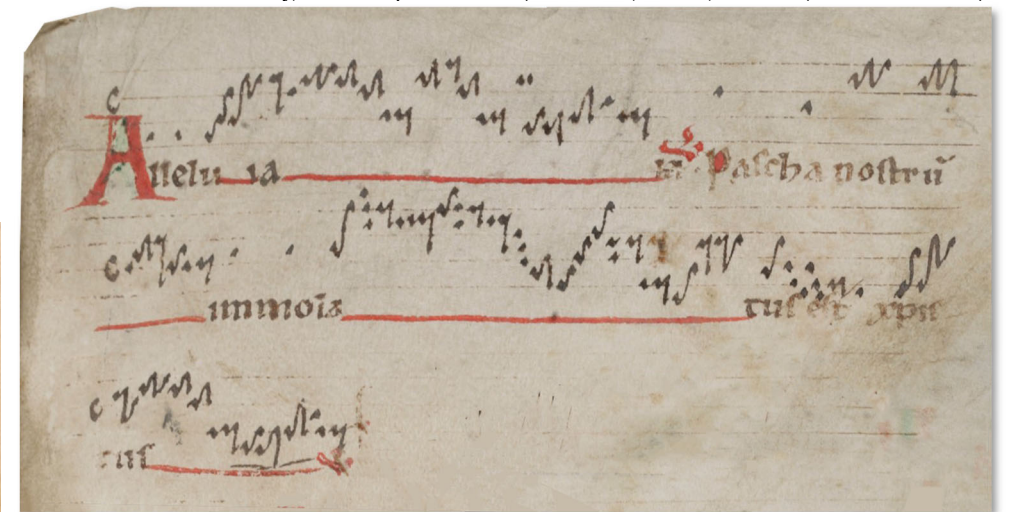 Allelu ia ℣. Pascha nostrū
immolā tus est xp̄c
tus